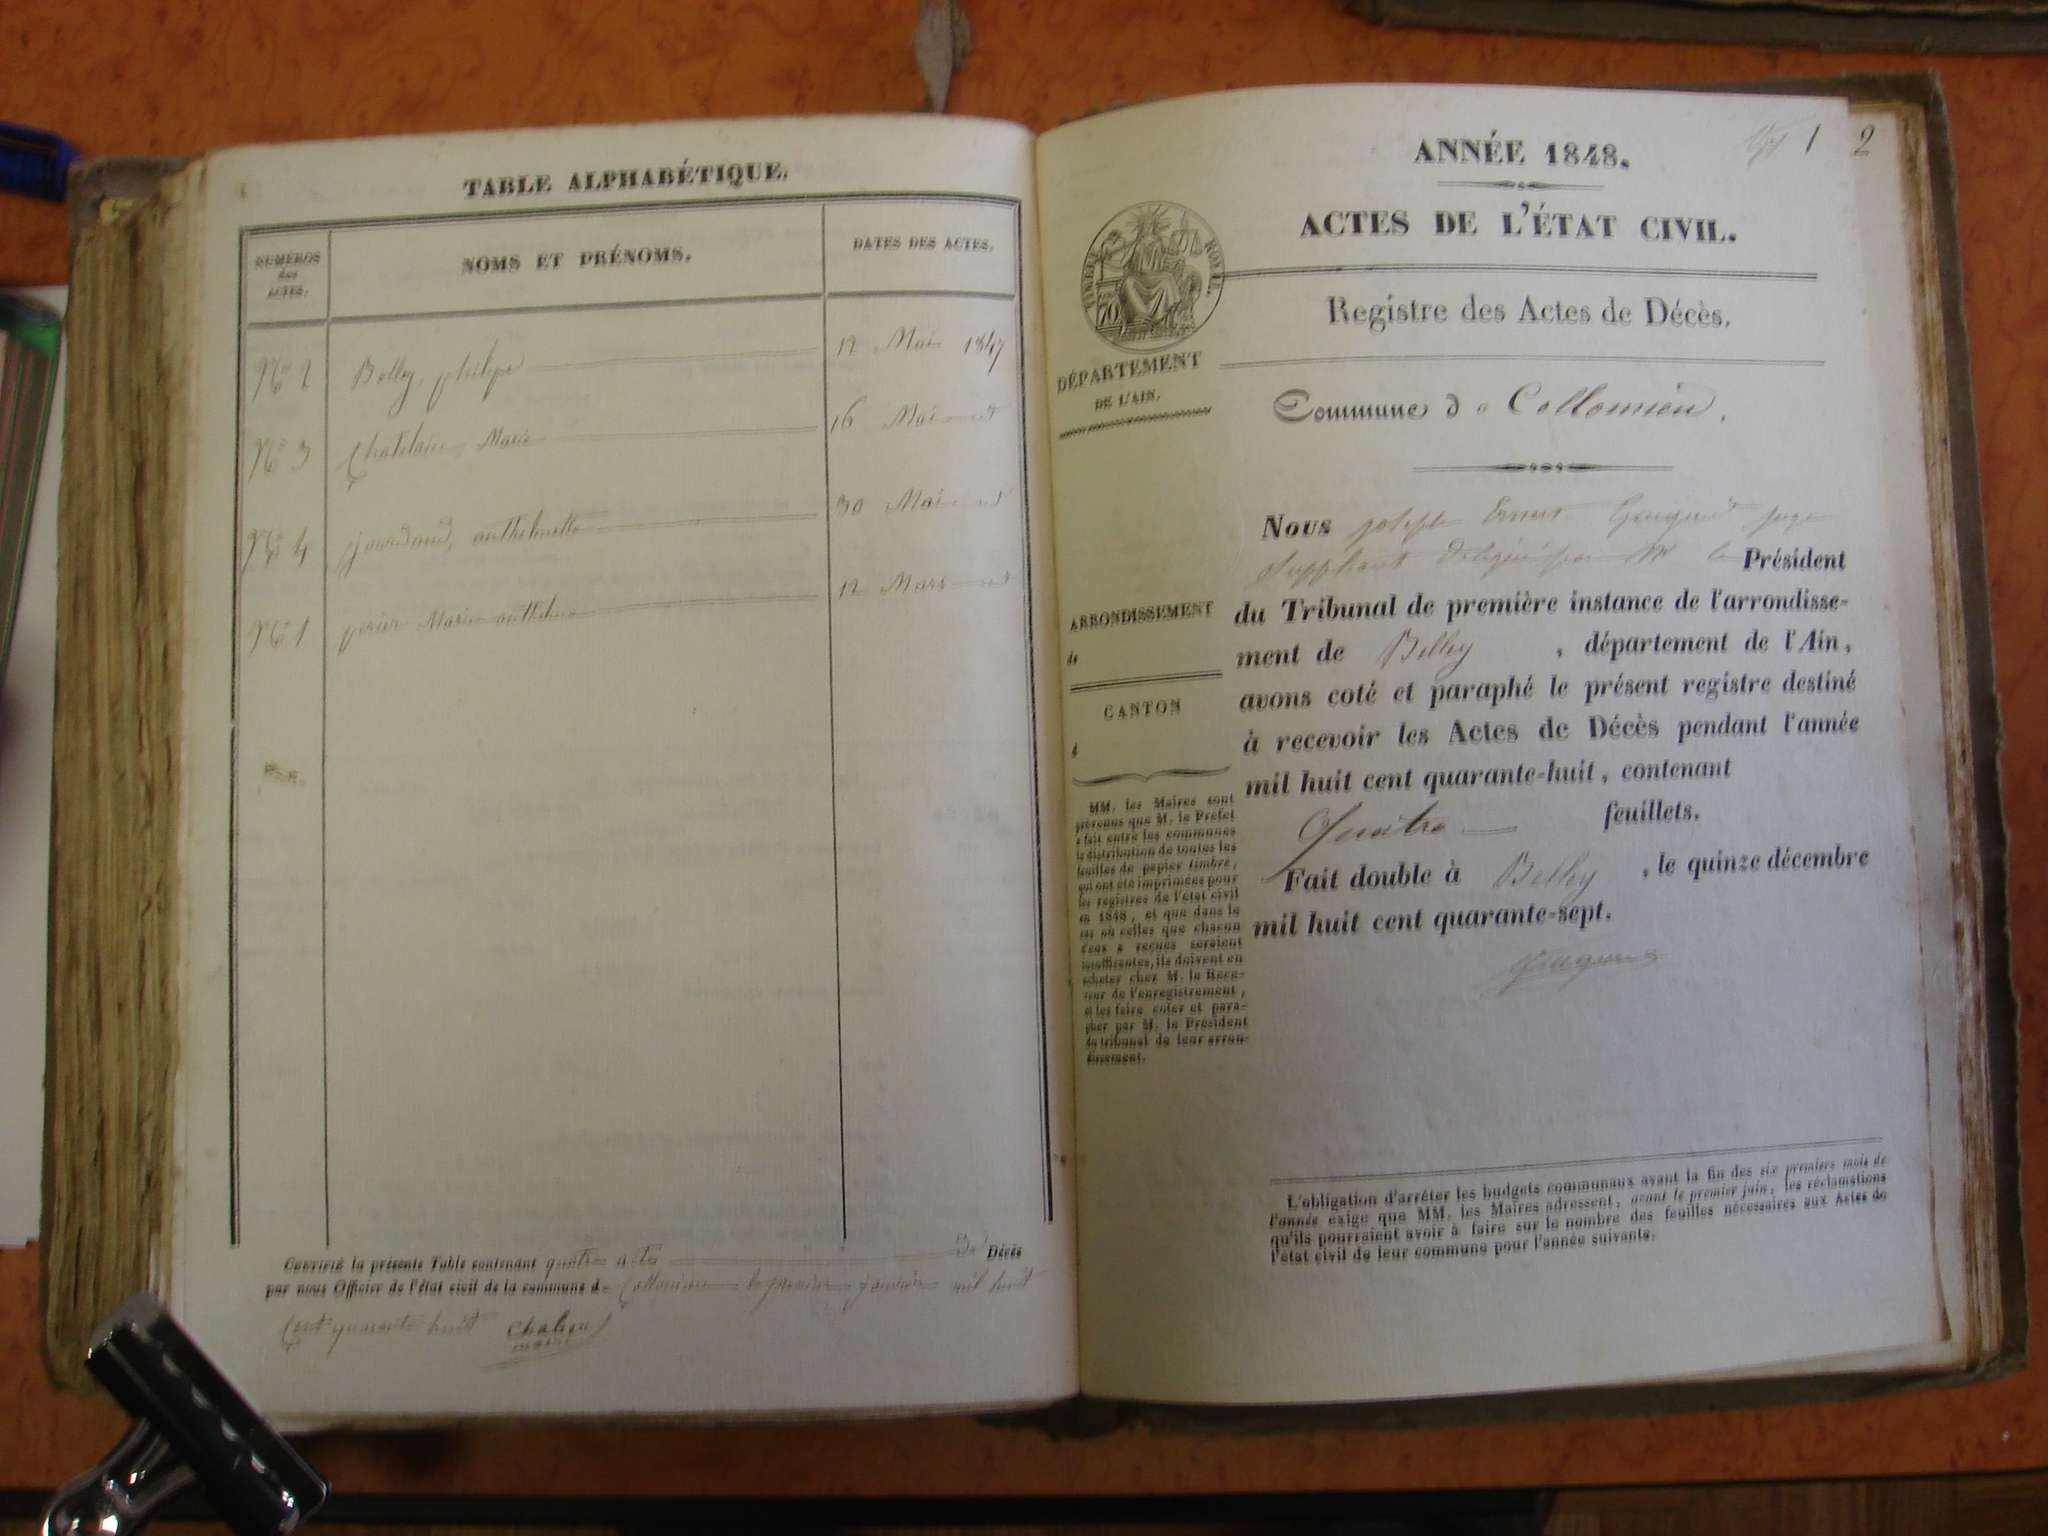 TABLE ALPHABÉTIQUE.
NUMÉROS
des
ACTES.
NOMS ET PRÉNOMS.
DATES DES ACTES.
N° 2 Belley, philipe 12 Mai 1847
N° 3 Chatelain, Marie 16 Mai id
N° 4 jourdand, anthelmette 30 Mai id
N° 1 perier Marie anthelme 12 Mars id
CERTIFIÉ la présente Table contenant quatre actes de Décès
par nous Officier de l'état civil de la commune de Collomieu le premier janvier mil huit
Cent quarante huit
maire
1 2
ANNÉE 1848.
ACTES DE L'ÉTAT CIVIL.
TIMBRE ROYAL
70
Registre des Actes de Décès.
DÉPARTEMENT
DE L'AIN.
Commune de Collomieu.
ARRONDISSEMENT
de
CANTON
d
MM. les Maires sont
prévenus que M. le Préfet
a fait entre les communes
la distribution de toutes les
feuilles de papier timbré,
qui ont été imprimées pour
les registres de l'état civil
en 1848, et que dans le
cas où celles que chacun
d'eux a reçues seraient
insuffisantes, ils doivent en
acheter chez M. le Rece-
veur de l'enregistrement,
et les faire coter et para-
pher par M. le Président
du tribunal de leur arron-
dissement.
Nous joseph Ernest juge
suppléant délégué par Mr le Président
du Tribunal de première instance de l'arrondisse-
ment de Belley, département de l'Ain,
avons coté et paraphé le présent registre destiné
à recevoir les Actes de Décès pendant l'année
mil huit cent quarante-huit, contenant
Quatre feuillets.
Fait double à Belley, le quinze décembre
mil huit cent quarante-sept.
L'obligation d'arrêter les budgets communaux avant la fin des six premiers mois de
l'année exige que MM. les Maires adressent, avant le premier juin, les réclamations
qu'ils pourraient avoir à faire sur le nombre des feuilles nécessaires aux Actes de
l'état civil de leur commune pour l'année suivante.